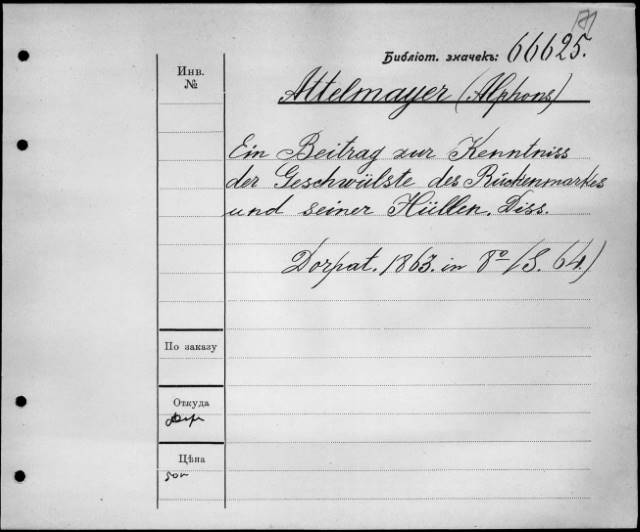 Библіот. значекъ: 66625.
Инв.
№
Attelmayer (Alphons)
Ein Beitrag zur Kenntniss
der Geschwülste des Rückenmarkes
und seiner Hüllen. Diss.
Dorpat. 1863. in 8º (S. 64.)
По заказу
Откуда
Цѣна